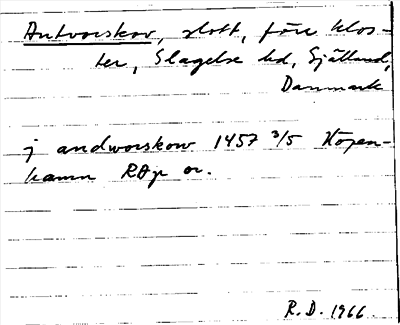 Antvorskov, slott, före klos-
ter, Slagelse hd, Själland,
Danmark
j andworskow 1457 3/5 Köpen-
hamn RAp or.
R.D. 1966.